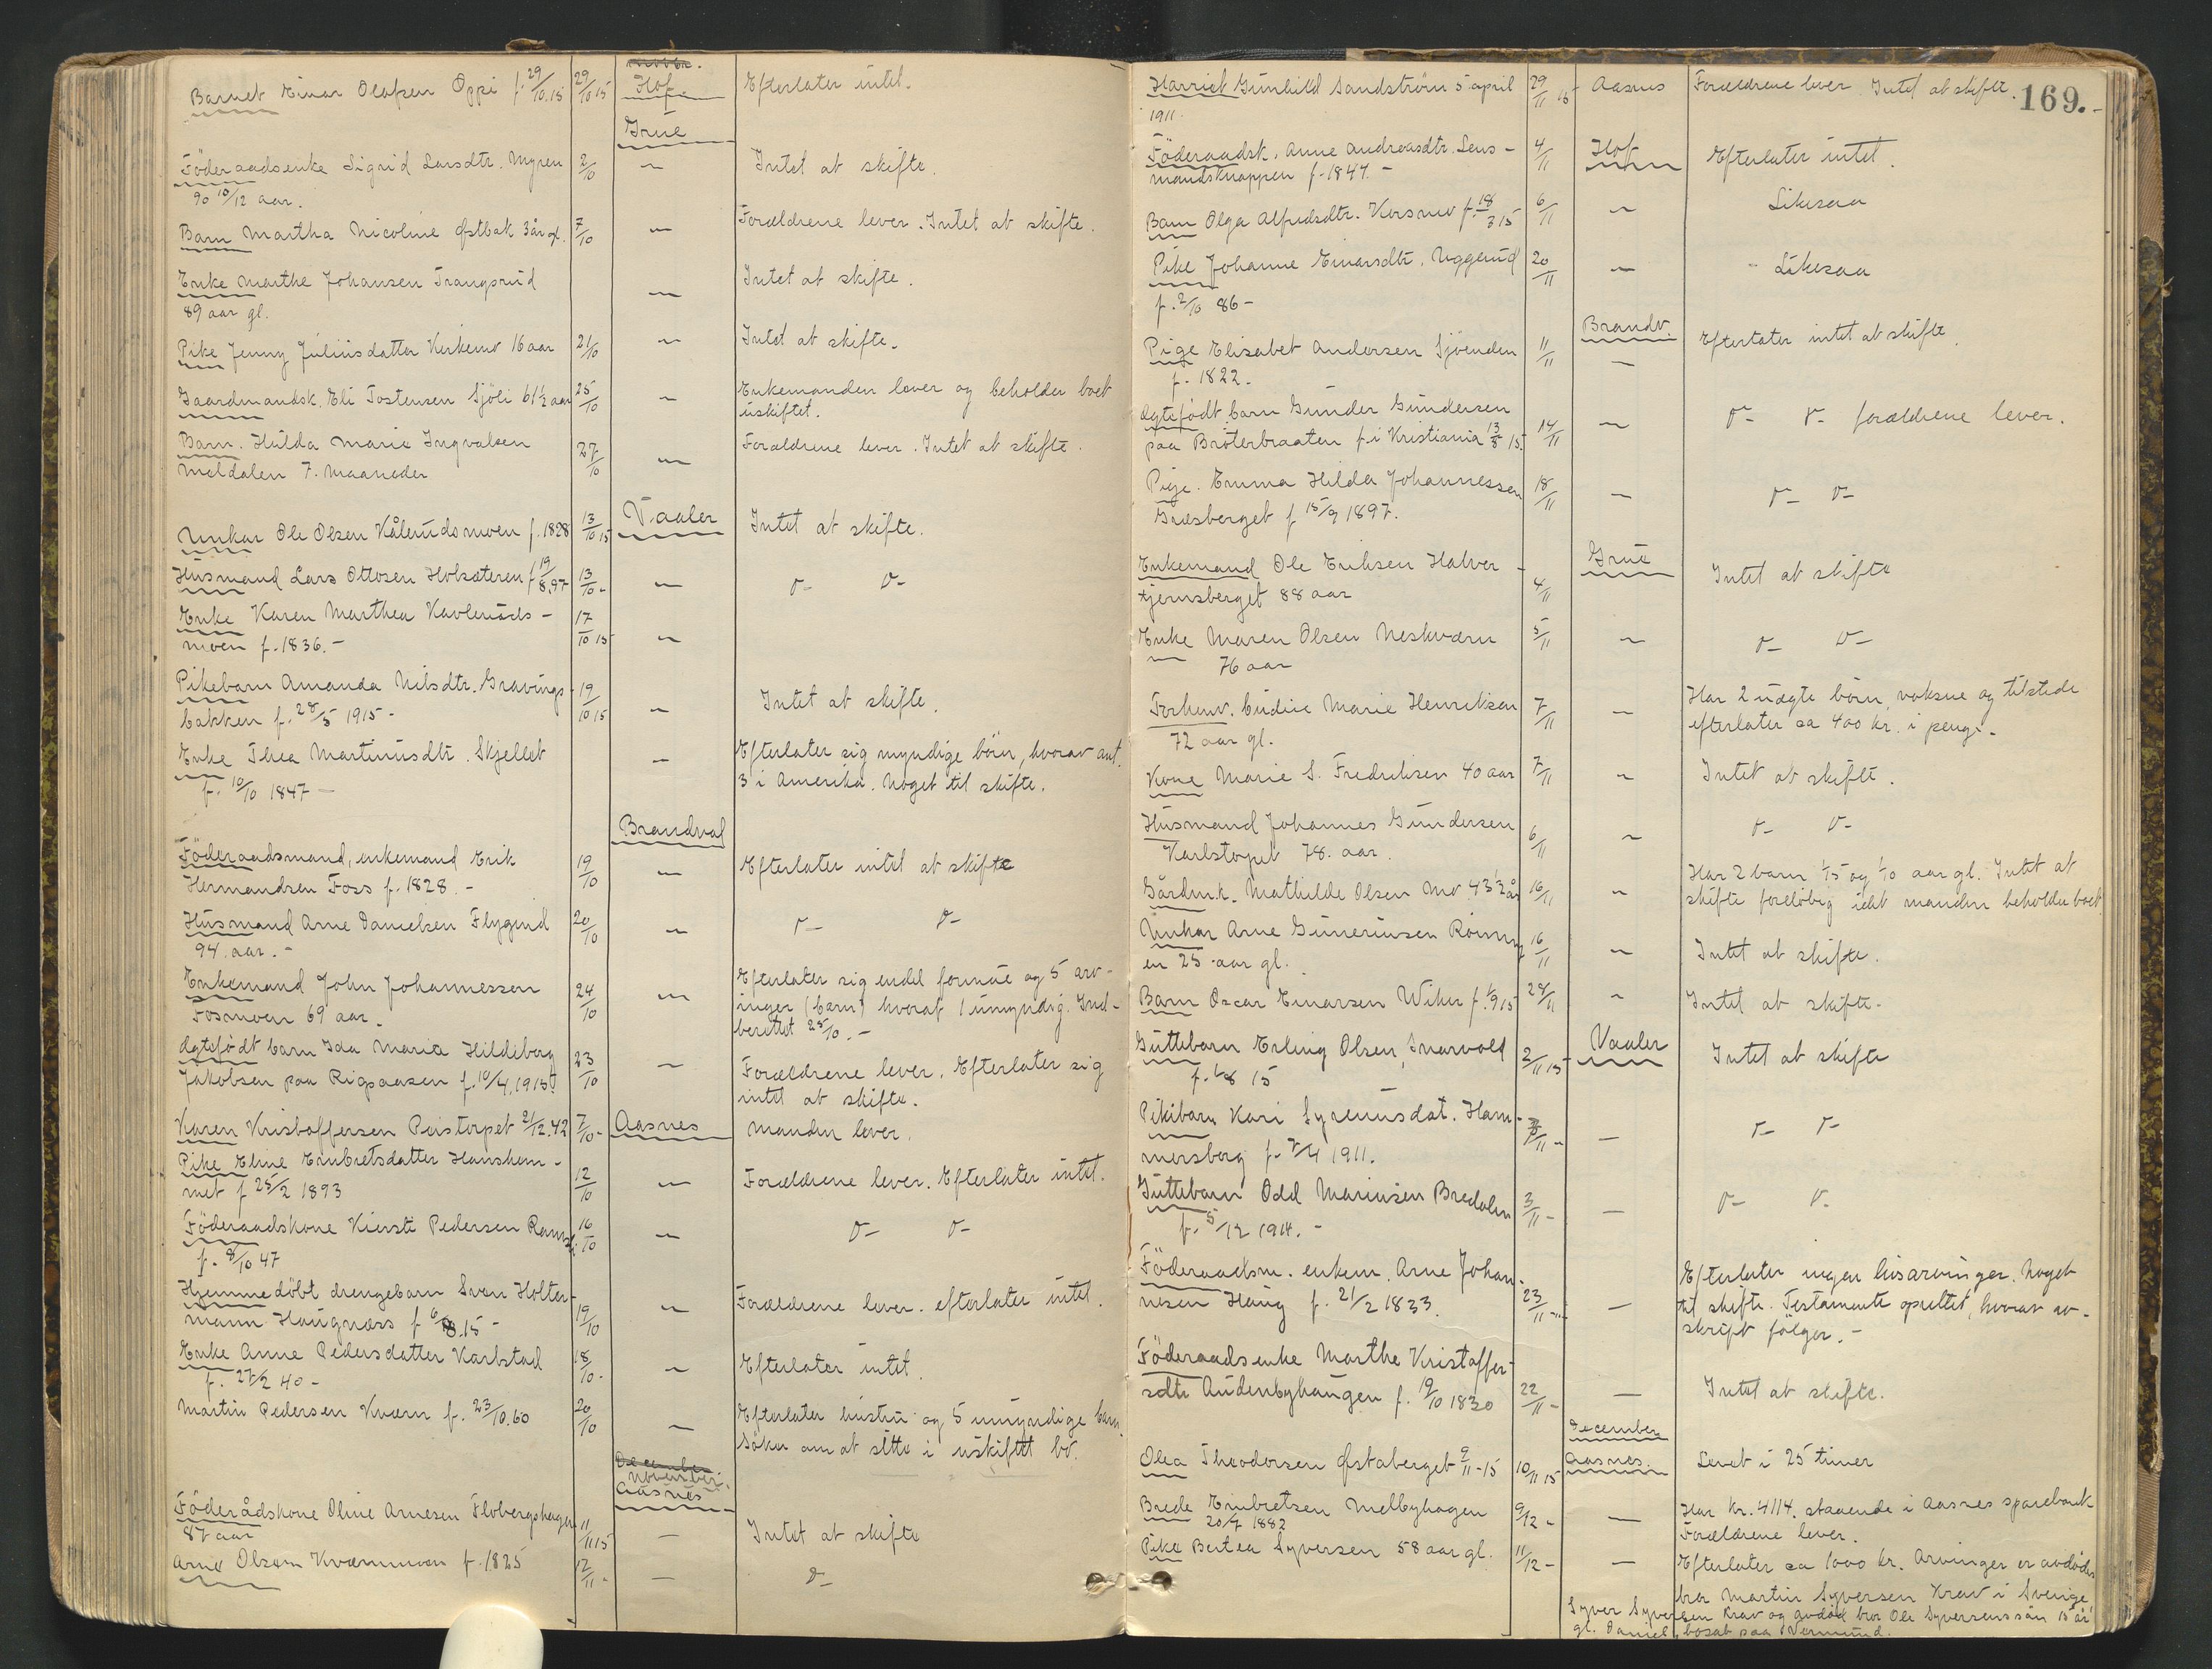 Barnet Einar Olafsen Oppi f. 29/10.15 29/10 15 Hof. Efterlater intet.
Grue
Föderaadsenke Sigrid Larsdtr. Myren 2/10 " Intet at skifte.
90 10/12 aar.
Barn Martha Nicoline Østbak 3 år gl. 7/10 " Forældrene lever. Intet at skifte.
Enke Marthe Johansen Trangsrud " Intet at skifte.
89 aar gl.
Pike Jenny Juliusdatter Kirkemo 16 aar 21/10 " Intet at skifte.
Gaardmandsk. Eli Tostensen Sjöli 61½ aar 25/10 " Enkemanden lever og beholder boet
uskiftet.
Barn. Hilda Marie Ingvalsen 27/10 " Forældrene lever. Intet at skifte.
Meldalen 7. Maaneder
Unkar Ole Olsen Kålerudsmoen f. 1828 13/10 15 Vaaler Intet at skifte.
Husmand Lars Ottosen Holsæteren f 19/8.97 13/10 - " v- v-
Enke Karen Marthea Kavleruds- 17/10 15 "
moen f. 1836. -
Pikebarn Amanda Nilsdtr. Gravings- 19/10 15 " Intet at skifte.
bakken f. 28/5 1915 -
Enke Thea Martinusdtr. Skjellet " Efterlater sig myndige börn, hvorav ant.
f. 10/10 1847 - 3 i Amerika. Noget til skifte.
Brandval
Föderaadsmand, enkemand Erik 19/10 " Efterlater intet at skifte
Hermandsen Foss f. 1828. -
Husmand Arne Danielsen Flygind 20/10 " v- v-
94 aar. -
Enkemand John Johannessen 24/10 " Efterlater sig endel formue og 5 arv-
Fosmoen 69 aar. inger (barn) hvoraf 1 umyndig. Ind-
berettet 25/10. -
Ægtefödt barn Ida Maria Hildeborg 23/10 " Forældrene lever. Efterlater sig
Jakobsen paa Rigsaasen f. 10/4.1915 intet at skifte.
Karen Kristoffersen Peistorpet 21/12.42 7/10 - Aasnes Manden lever.
Pike Eline Embretsdatter Hanshem- 12/10 " Forældrene lever. Efterlater intet.
met f 25/2 1893
Föderaadskone Kiersti Pedersen 16/10 " v- v-
f. 8/10 47
Hjemmedöbt drengebarn Sven Holter- 19/10 " Forældrene lever. efterlater intet.
mann Haugnæss f 15 -
Enke Anne Pedersdatter Karlstad 18/10 - " Efterlater intet.
f. 27/2 40 -
Martin Pedersen Kværn f. 23/10.60 20/10 " Efterlater hustru og 5 umyndige barn.
Söker om at sitte i uskiftet bo.
December
November.
Aasnes
Föderådskone Oline Arnesen Flobergshagen 11/11 15 - Intet at skifte
87 aar
Arne Olsen Kværnmoen f. 1825 12/11 - - v-
169.-
Harriet Gunhild Sandström 5 april 29/11 15 Aasnes Forældrene lever. Intet at skifte.
1911.
Föderaadsk. Anne Andreasdtr. Lens- 4/11 Hof Efterlater intet.
mandsknappen f. 1847. -
Barn Olga Alfredsdtr. Kersmo f. 18/3 15 6/11 " Likesaa
Pike Johanne Einarsdtr. Uggerud 20/11 " Likesaa
f. 2/10 86 -
Brandv.
Pige Elisabet Andersen Sjöenden 11/11 - Efterlater intet at skifte.
f. 1822.
Ægtefödt barn Gunder Gundersen
paa Bröterbraaten f. i Kristiania 13/8 15. 14/11 " v- v- forældrene lever.
Pige. Emma Hilda Johannessen 18/11 - v- v-
Græsberget f 15/9 1897.
Enkemand Ole Eriksen Halver- 4/11 Grue Intet at skifte
tjernsberget 88 aar
Enke Maren Olsen Neskværn 5/11 " v- v-
76 aar
Forhenv. budeie Marie Henriksen 7/11 - Har 2 uægte börn, voksne og tilstede
72 aar gl. efterlater ca 400 kr. i penge.
Kone Marie S. Fredriksen 40 aar 7/11 " Intet at skifte.
Husmand Johannes Gundersen 6/11 " v- v-
Karlstorpet 78. aar.
Gårdmk. Mathilde Olsen Mo 43½ år 16/11 " Har 2 barn 1/5 og 1/0 aar gl. Intet at
skifte forelöbig idet manden beholder boet.
Unkar Arne Guneriusen 16/11 " Intet at skifte.
en 25 aar gl.
Barn Oscar Einarsen Wiker f. 1/9 15 28/11 " Intet at skifte.
Guttebarn Erling Olsen, Snarvold 2/11 15 Vaaler Intet at skifte
f. 1/8 15
Pikebarn Kari Syreniusdat. Ham- /11 - - v- v-
mersberg f. 7/4 1911.
Guttebarn Odd Mariusen Bredalen 3/11 - - v- v-
f. 5/12 1914. -
Föderaadsm. enkem. Arne Johan- 23/11 - - Efterlater ingen livsarvinger. Noget
nesen Haug f. 21/2 1833. til skifte. Testamente oprettet, hvorav av-
skrift fölger. -
Föderaadsenke Marthe Kristoffer-
sdtr Audenbyhaugen f. 19/10 1830 22/11 - - Intet at skifte.
December
Olea Theodorsen Østaberget 9/11 - 15 10/11 15 Aasnes. Levet i 25 timer
Brede Embretsen Melbyhagen 9/12 - - Har kr. 4114. staaende i Aasnes sparebank
20/7 1882 Forældrene lever.
Pike Bertea Syversen 58 aar gl. 11/12 - - Efterlater ca 1000 kr. Arvinger er avdödes
bror Martin Syversen Krav i Sverige,
Syver Syversen Krav og avdöd bror Ole Syversens sön 15 år
gl. Daniel, bosat paa Vermund.